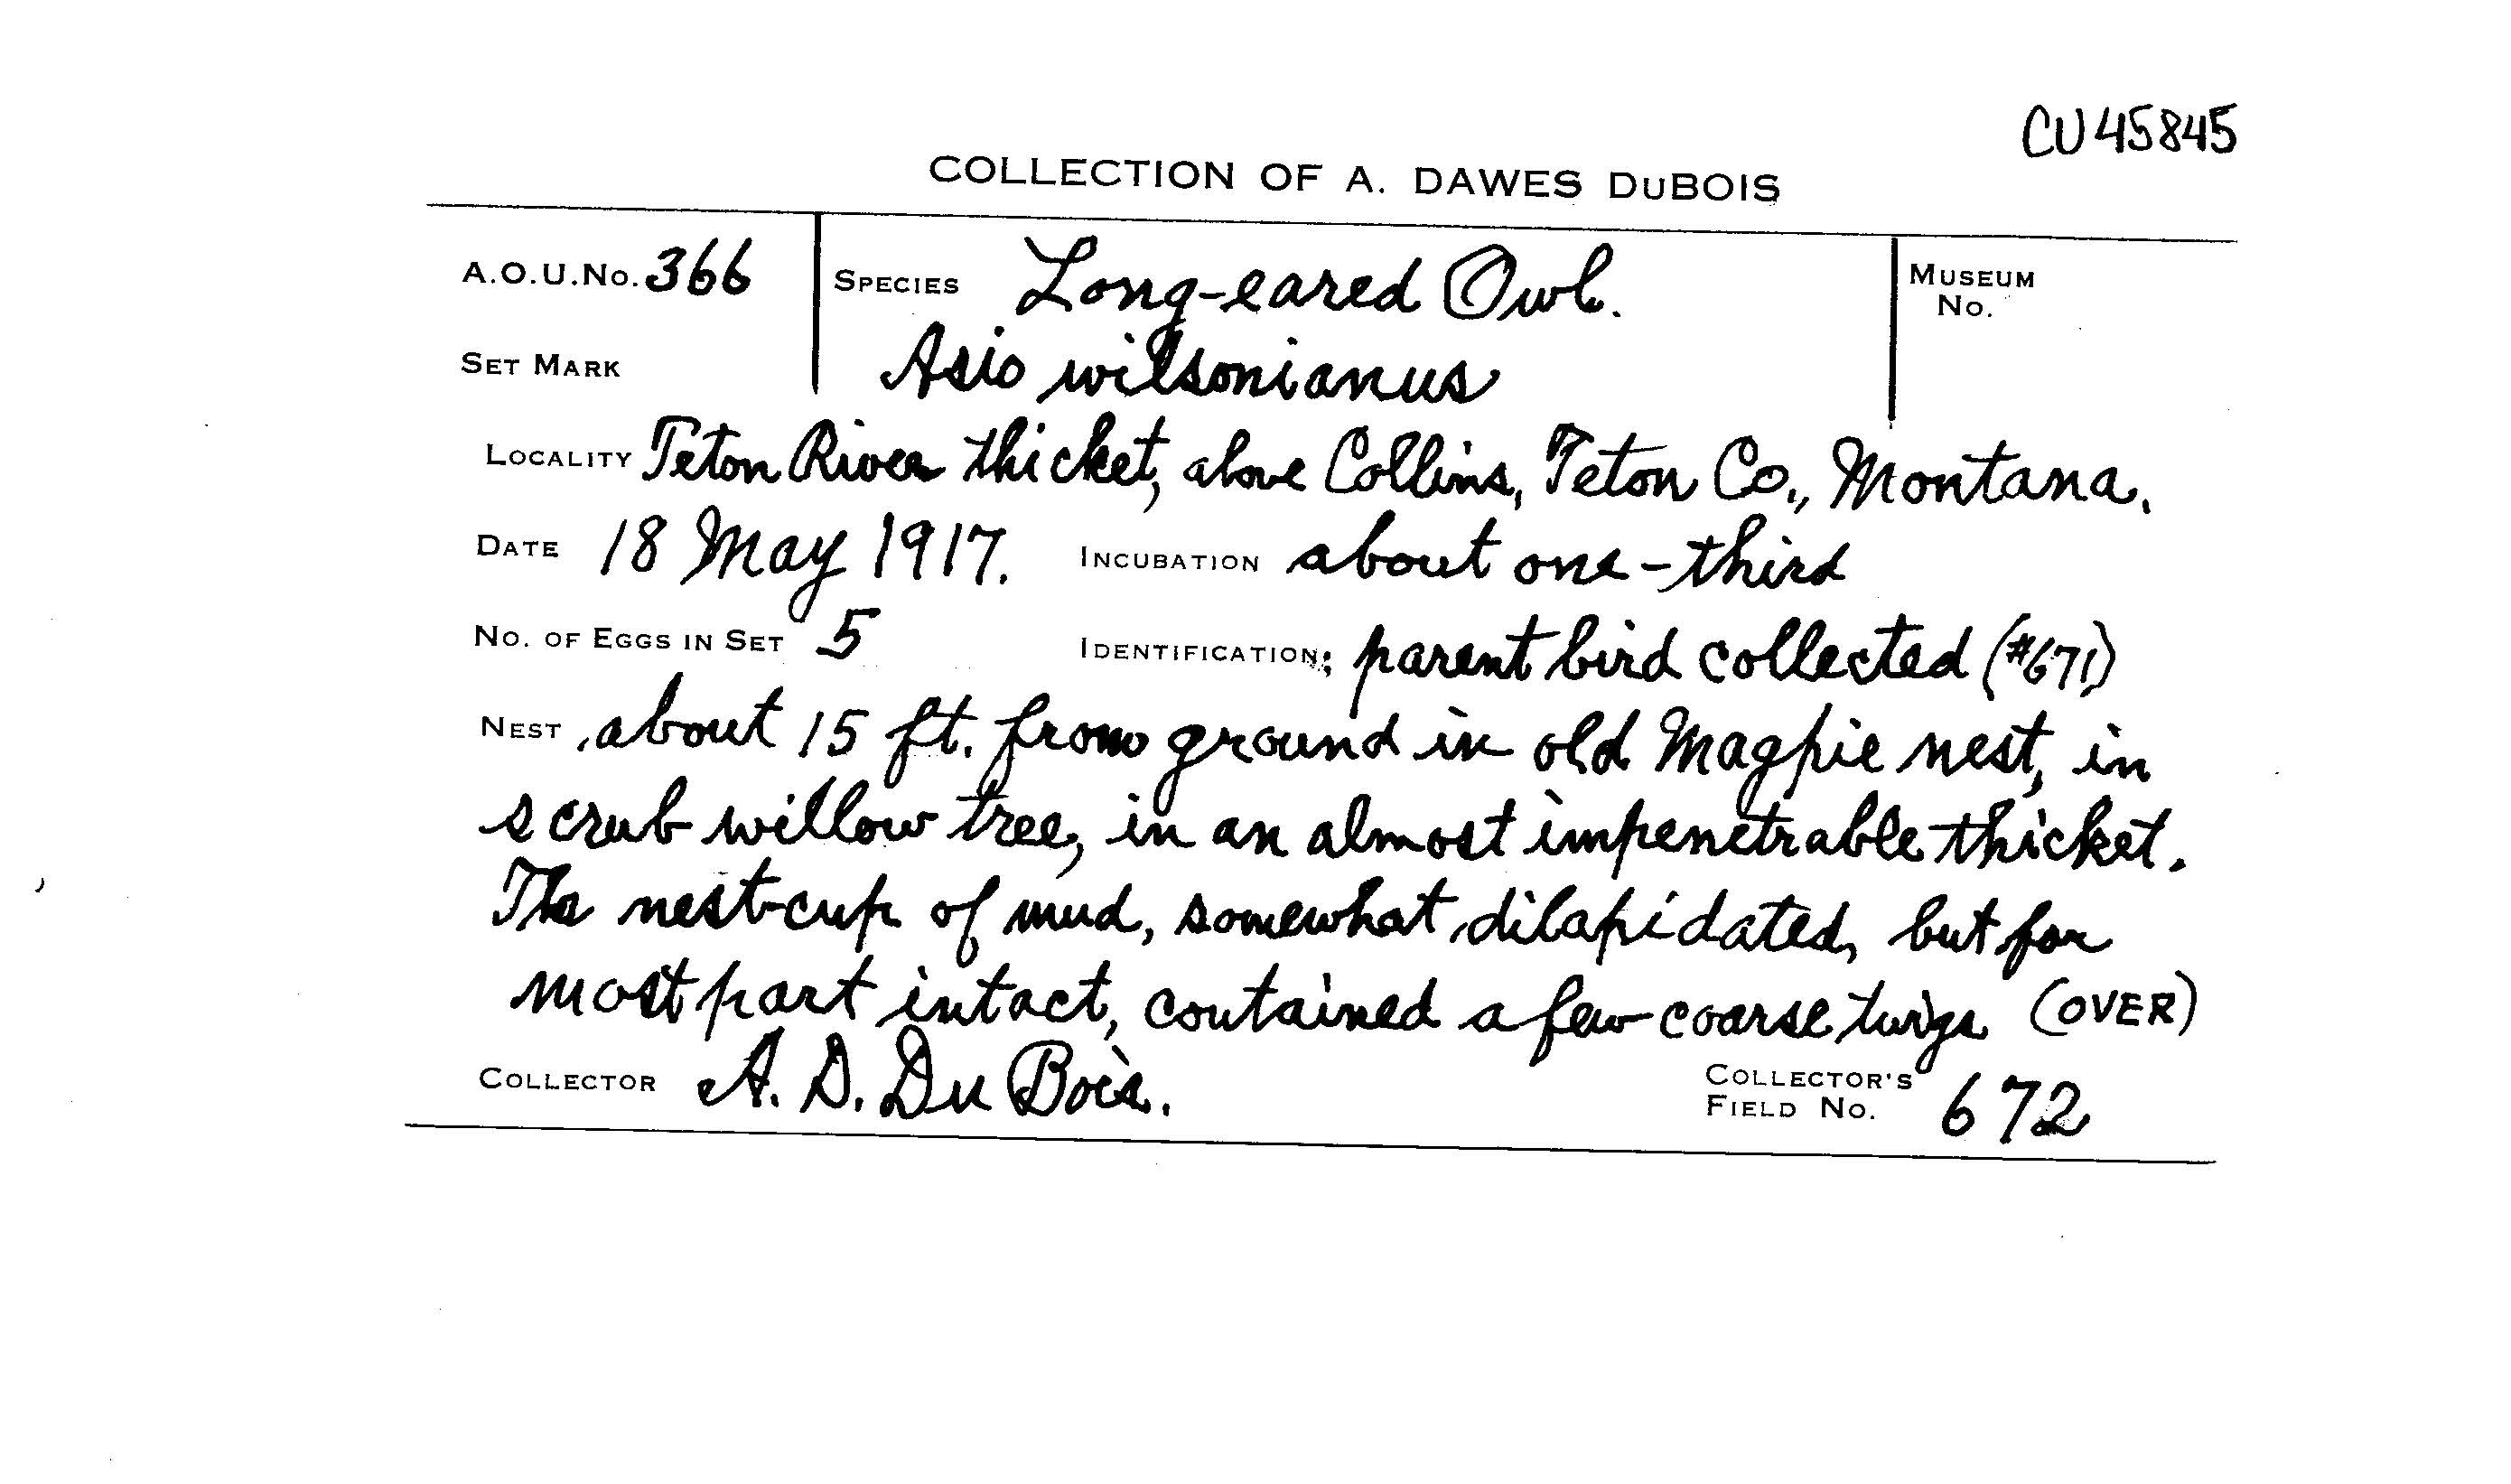 CU45845
COLLECTION OF A. DAWES DUBOIS
A.O.U.No. 366 SPECIES Long-eared Owl. MUSEUM No.
SET MARK Asio wilsonianus
LOCALITY Teton River thicket, above Collins, Teton Co., Montana.
DATE 18 May 1917. INCUBATION about one-third
No. OF EGGS IN SET 5 IDENTIFICATION: parent bird collected (#671)
NEST about 15 ft. from ground in old Magpie nest, in
scrub willow tree, in an almost impenetrable thicket.
The nest-cup of mud, somewhat dilapidated, but for
most part intact, contained a few coarse twigs (OVER)
COLLECTOR A. D. Du Bois. COLLECTOR'S FIELD No. 672